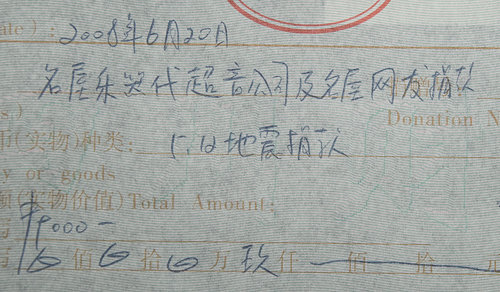 ate): 2008年6月20日
名屋乐器代超音公司及名屋网友捐款
Donation N
币(实物)种类: 5.12地震捐款
y or goods
额(实物价值)Total Amount:
¥9000—
佰 拾 万 玖仟 — 佰 — 拾 — 元